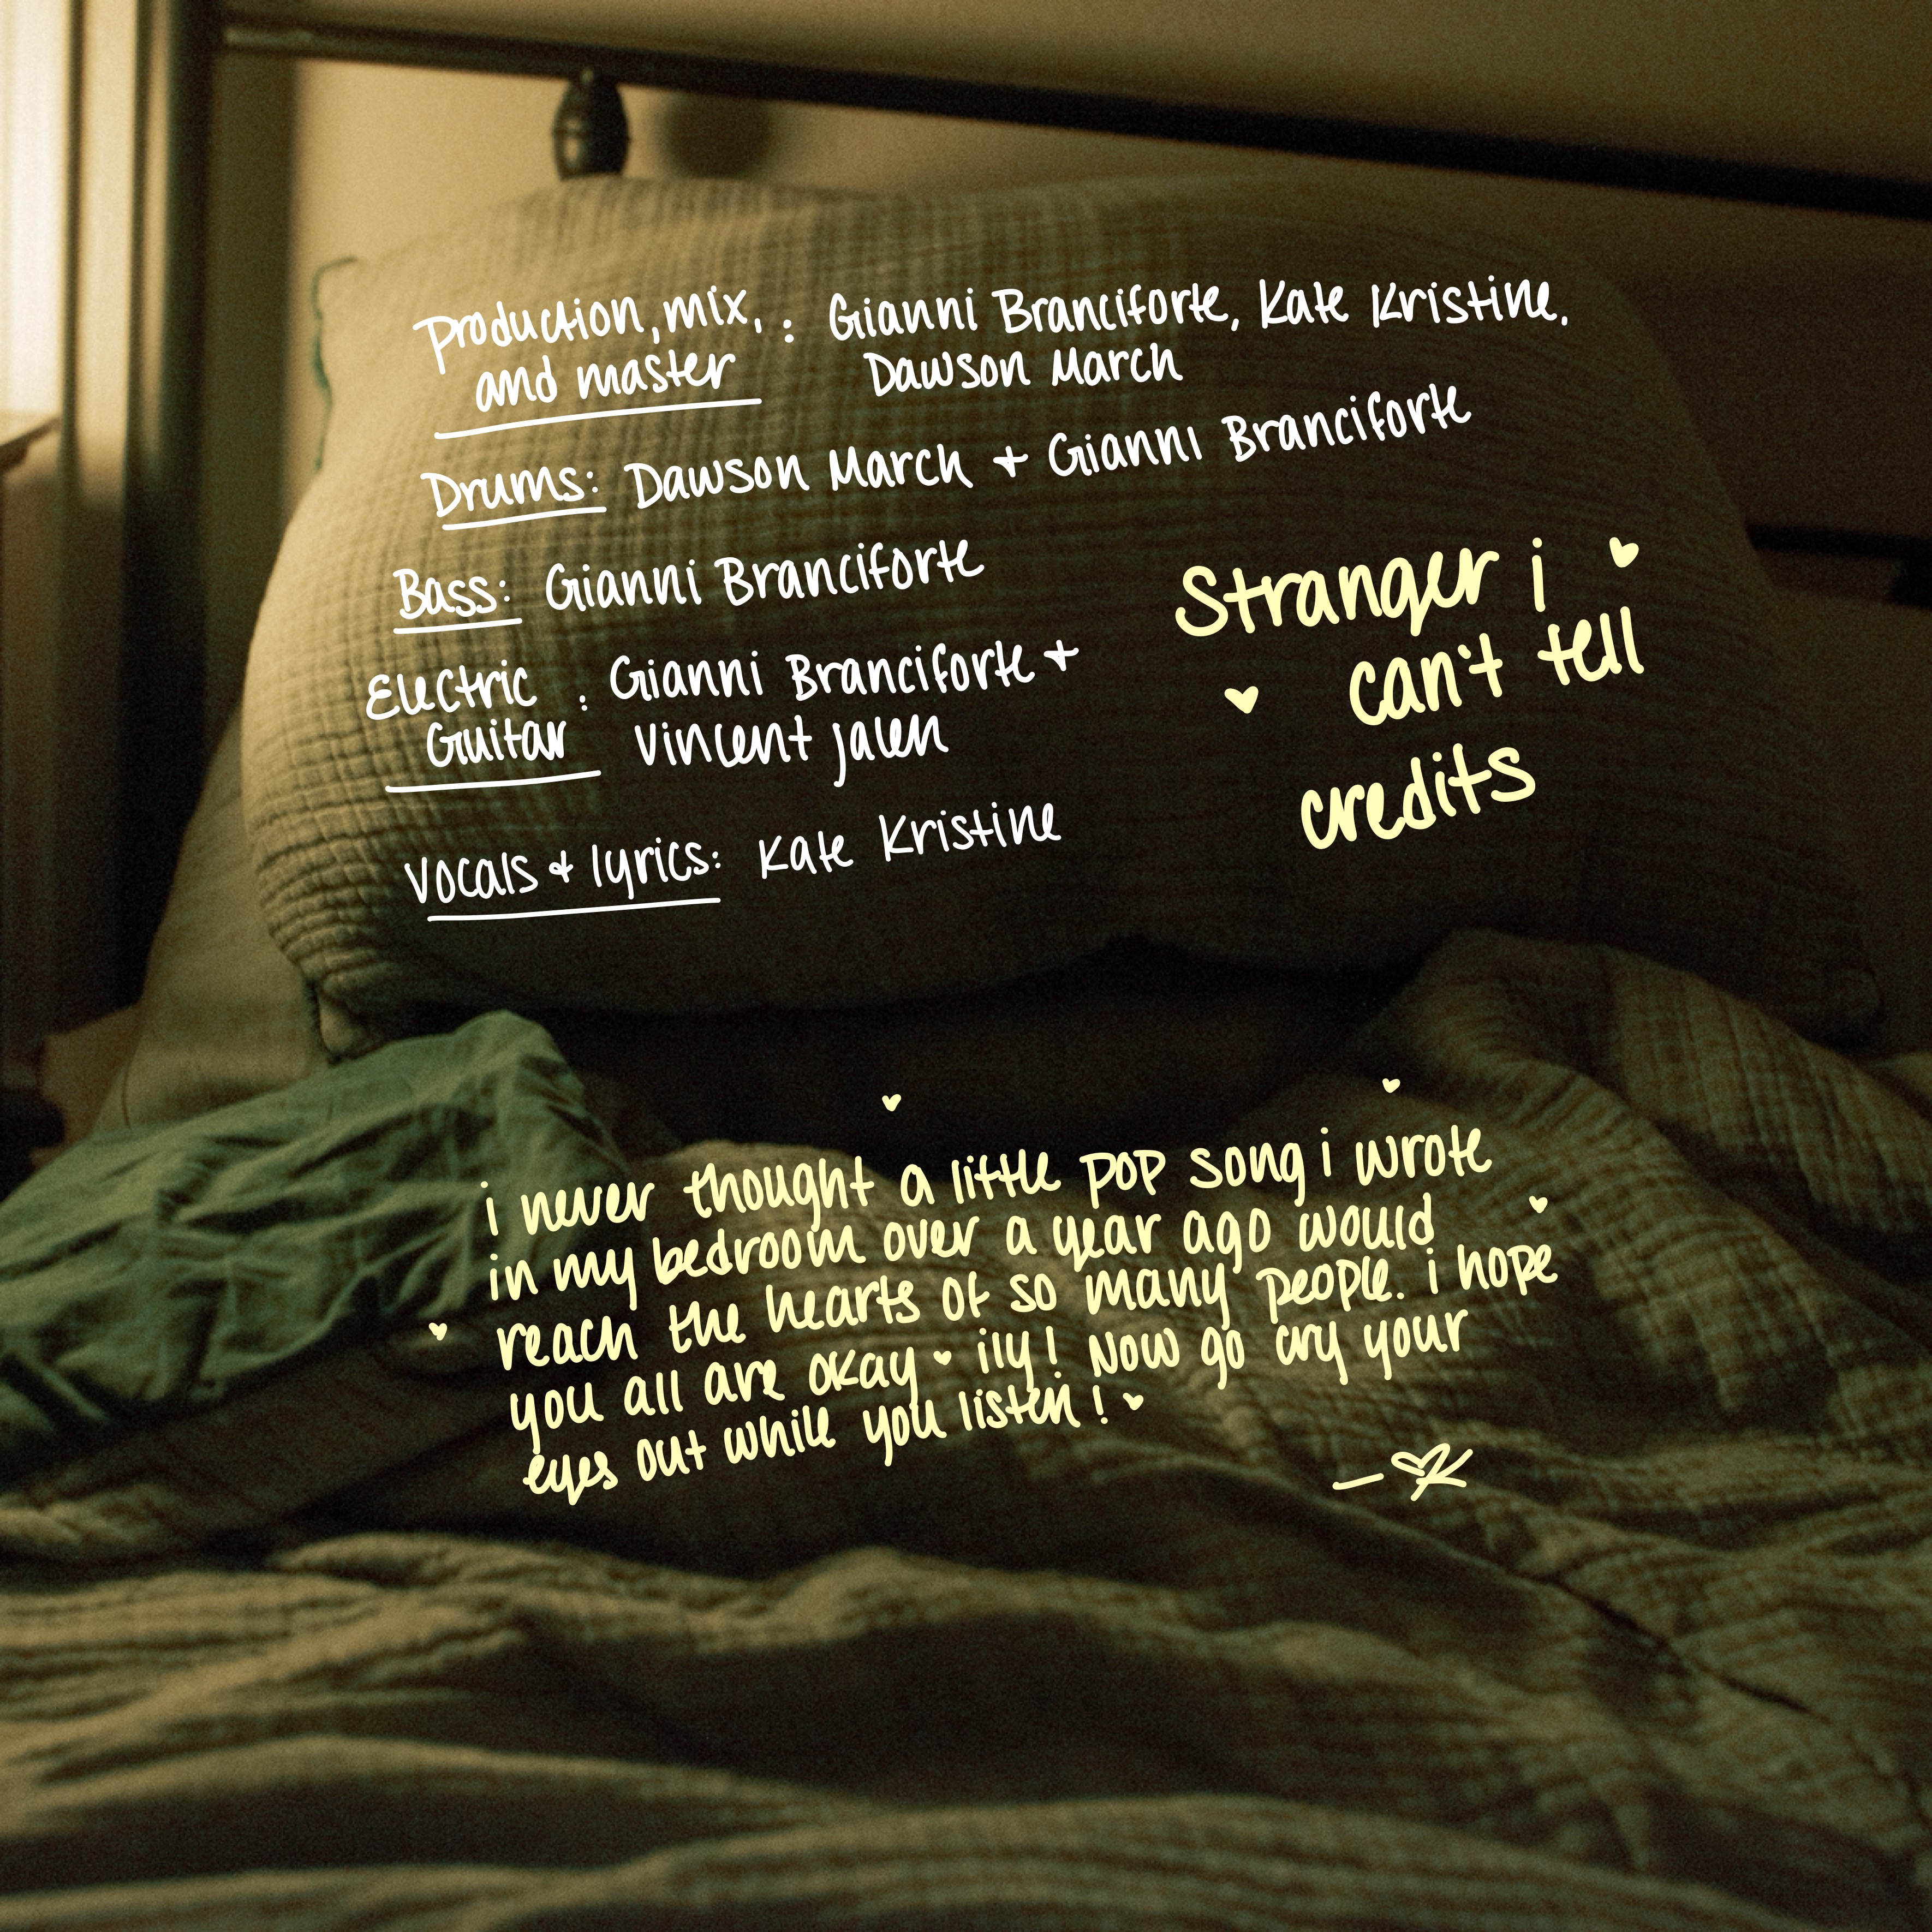 Production, mix, : Gianni Branciforte, Kate Kristine,
and master Dawson March
Drums: Dawson March + Gianni Branciforte
Bass: Gianni Branciforte
Electric : Gianni Branciforte +
Guitar Vincent jalen
Vocals + lyrics: Kate Kristine
Stranger i
can't tell
credits
i never thought a little pop song i wrote
in my bedroom over a year ago would
reach the hearts of so many people. i hope
you all are okay ♥ ily! Now go cry your
eyes out while you listen! ♥
— ♥K